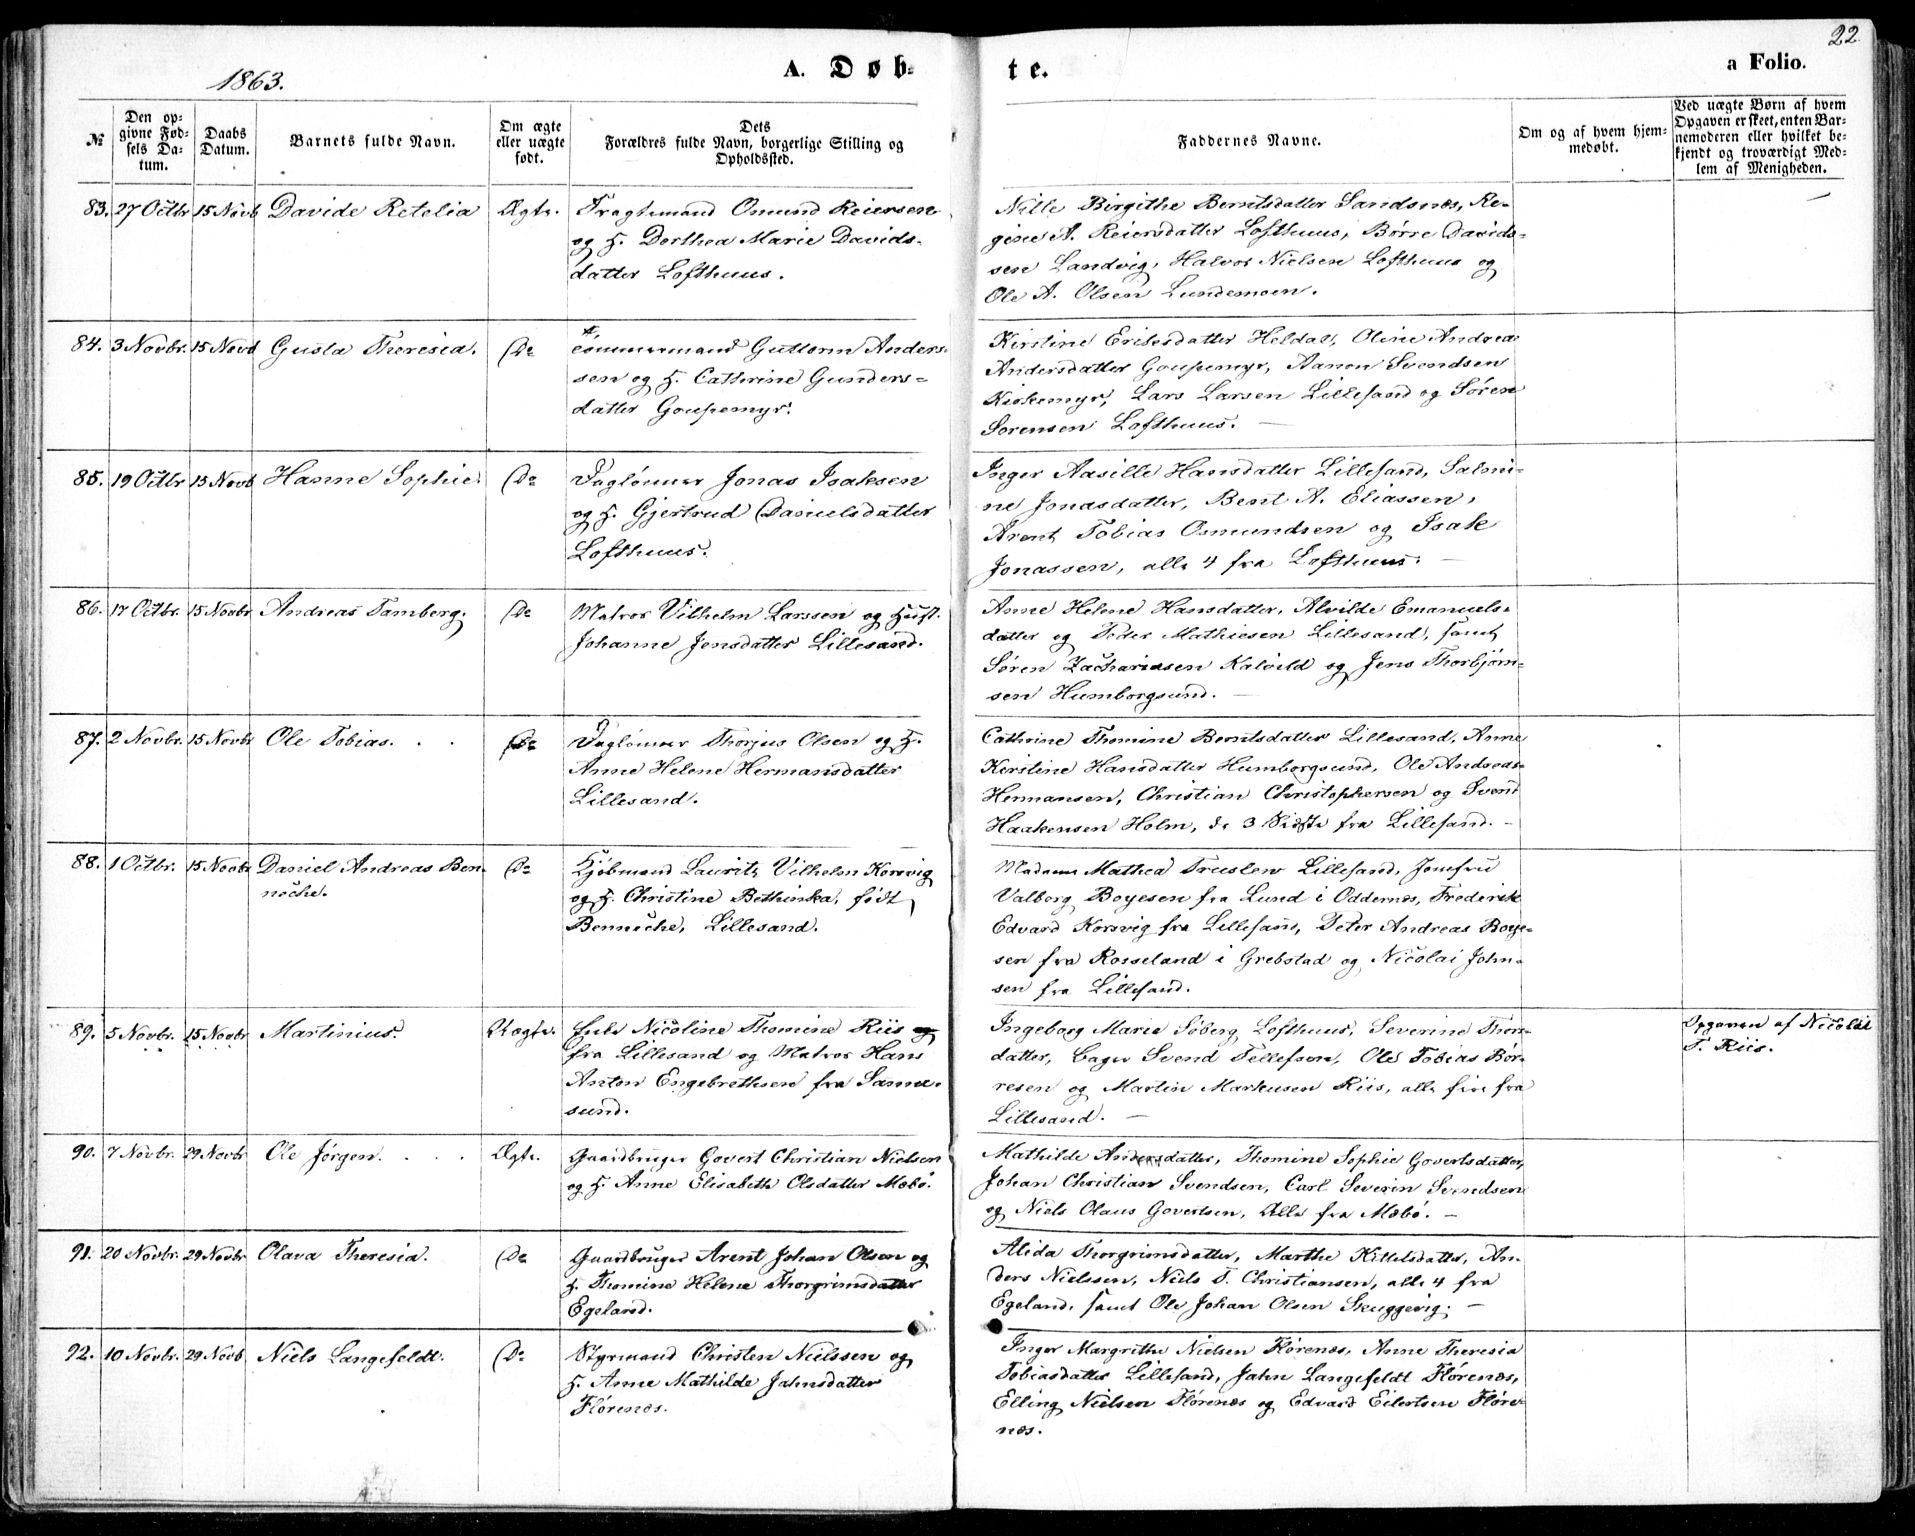 22
1863.
A. Døb-
te.
a Folio.
№
Den op-
givne Fød-
sels Da-
tum.
Daabs
Datum.
Barnets fulde Navn.
Om ægte
eller uægte
født.
Dets
Forældres fulde Navn, borgerlige Stilling og
Opholdssted.
Faddernes Navne.
Om og af hvem hjem-
medøbt.
Ved uægte Børn af hvem
Opgaven er skeet, enten Bar-
nemoderen eller hvilket be-
kjendt og troværdigt Med-
lem af Menigheden.
83. 27 Octbr 15 Novb Davide Retelia Ægte. Fragtemand Omund Reiersen
og H. Dorthea Marie Davids-
datter Lofthuus.
Nille Birgithe Berntsdatter Sandsnæs, Re-
gine A. Reiersdatter Lofthuus, Børre Davids-
sen Landvig, Halvor Nielsen Lofthuus og
Ole A. Olsen Lundemoen.
84. 3 Novbr. 15 Novb Gusta Theresia. Do Tömmermand Guttorm Anders-
sen og H. Cathrine Gunders-
datter Goupemyr.
Kirstine Ericksdatter Heldal, Oline Andrea
Andersdatter Goupemyr, Aanon Svendsen
Kirkemyr, Lars Larsen Lillesand og Søren
Sorensen Lofthuus. —
85. 19 Octbr 15 Novb Hanne Sophie. Do Daglönner Jonas Isaksen
og H. Gjertrud Danielsdatter
Lofthuus.
Inger Aasille Hansdatter Lillesand, Salmi-
ne Jonasdatter, Bent A. Eliassen,
Arent Tobias Osmundsen og Isak
Jonassen, alle 4 fra Lofthuus. —
86. 17 Octbr. 15 Novbr. Andreas Tamberg. Do Matros Vilhelm Larssen og Hust.
Johanne Jensdatter Lillesand.
Anne Helene Hansdatter, Alvilde Emanuels-
datter og Peder Mathiesen Lillesand, samt
Søren Zachariasen Kalvild og Jens Thorbjørn-
sen Humborgsund. —
87. 2 Novbr. 15 Novbr Ole Tobias. . . Do Daglönner Thorjus Olsen og H.
Anne Helene Hermansdatter
Lillesand.
Cathrine Thomine Berntsdatter Lillesand, Anne
Kirstine Hansdatter Humborgsund, Ole Andreas
Hermansen, Christian Christophersen og Svend
Haakensen Holm, de 3 Sidste fra Lillesand. —
88. 1 Octbr. 15 Novbr Daniel Andreas Ben-
neche. Do Kjöbmand Laurits Vilhelm Korsvig
og H. Christine Bethinka, født
Benneche, Lillesand.
Madame Mathea Truslew Lillesand, Jomfru
Valborg Boyesen fra Lund i Oddernæs, Frederik
Edvard Korsvig fra Lillesand, Peter Andreas Boye-
sen fra Rosseland i Grebstad og Nicolai John-
sen fra Lillesand.
89. 5 Novbr. 15 Novbr Martinius. Uægte. Enke Nicoline Thomine Riis og
fra Lillesand og Matros Hans
Anton Engebrethsen fra Sanne-
sund.
Ingeborg Marie Søberg Lofthuus, Severine Thor-
datter, Bager Svend Tellefsen, Ole Tobias Bör-
resen og Martin Markusen Riis, alle fire fra
Lillesand. —
Opgaven af Nicoline
T. Riis.
90. 7 Novbr. 29 Novbr Ole Jørgen. . . . Ægte. Gaardbruger Govert Christian Nielsen
og H. Anne Elisabeth Olsdatter Mæbö.
Mathilde Andersdatter, Thomine Sophie Govertsdatter,
Johan Christian Svendsen, Carl Severin Svendsen
og Niels Olaus Govertsen, Alle fra Mæbö. —
91. 20 Novbr. 29 Novbr Olava Theresia. Do Gaardbruger Arent Johan Olsen og
H. Thomine Helene Thorgrimsdatter
Egeland.
Alida Thorgrimsdatter, Marthe Kittelsdatter, An-
ders Nielssen, Niels T. Christiansen, alle 4 fra
Egeland, samt Ole Johan Olsen Skuggevig. —
92. 10 Novbr. 29 Novb Niels Langefeldt. Do Styrmand Christen Nielssen og
H. Anne Mathilde Jahnsdatter
Flörenæs.
Inger Margrithe Nielsen Flörenæs, Anne Theresia
Tobiasdatter Lillesand, Jahn Langefeldt Flörenæs,
Elling Nielsen Flörenæs og Edvard Eilertsen Flöre-
næs.